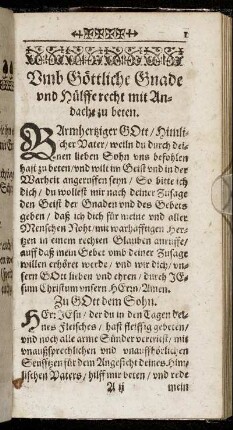 1
Vmb Göttliche Gnade
vnd Hülffe recht mit An-
dacht zu beten.
BArmhertziger GOtt / Himli-
scher Vater / weiln du durch dei-
nen lieben Sohn vns befohlen
hast zu beten / vnd wilt im Geist vnd in der
Warheit angeruffen seyn / So bitte ich
dich / du wollest mir nach deiner Zusage
den Geist der Gnaden vnd des Gebets
geben / daß ich dich für meine vnd aller
Menschen Noht / mit warhafftigen Her-
tzen in einem rechten Glauben anruffe /
auff daß mein Gebet vmb deiner Zusage
willen erhöret werde / vnd wir dich / vn-
sern GOtt lieben vnd ehren / durch JE-
sum Christum vnsern HErrn / Amen.
Zu GOtt dem Sohn.
HErr JEsu / der du in den Tagen dei-
nes Fleisches / hast fleissig gebeten /
vnd noch alle arme Sünder vertrittst / mit
vnaußsprechlichen vnd vnauffhörlichen
Seufftzen für dem Angesicht deines Him-
lischen Vaters / hilff mir beten / vnd rede
A ij mein